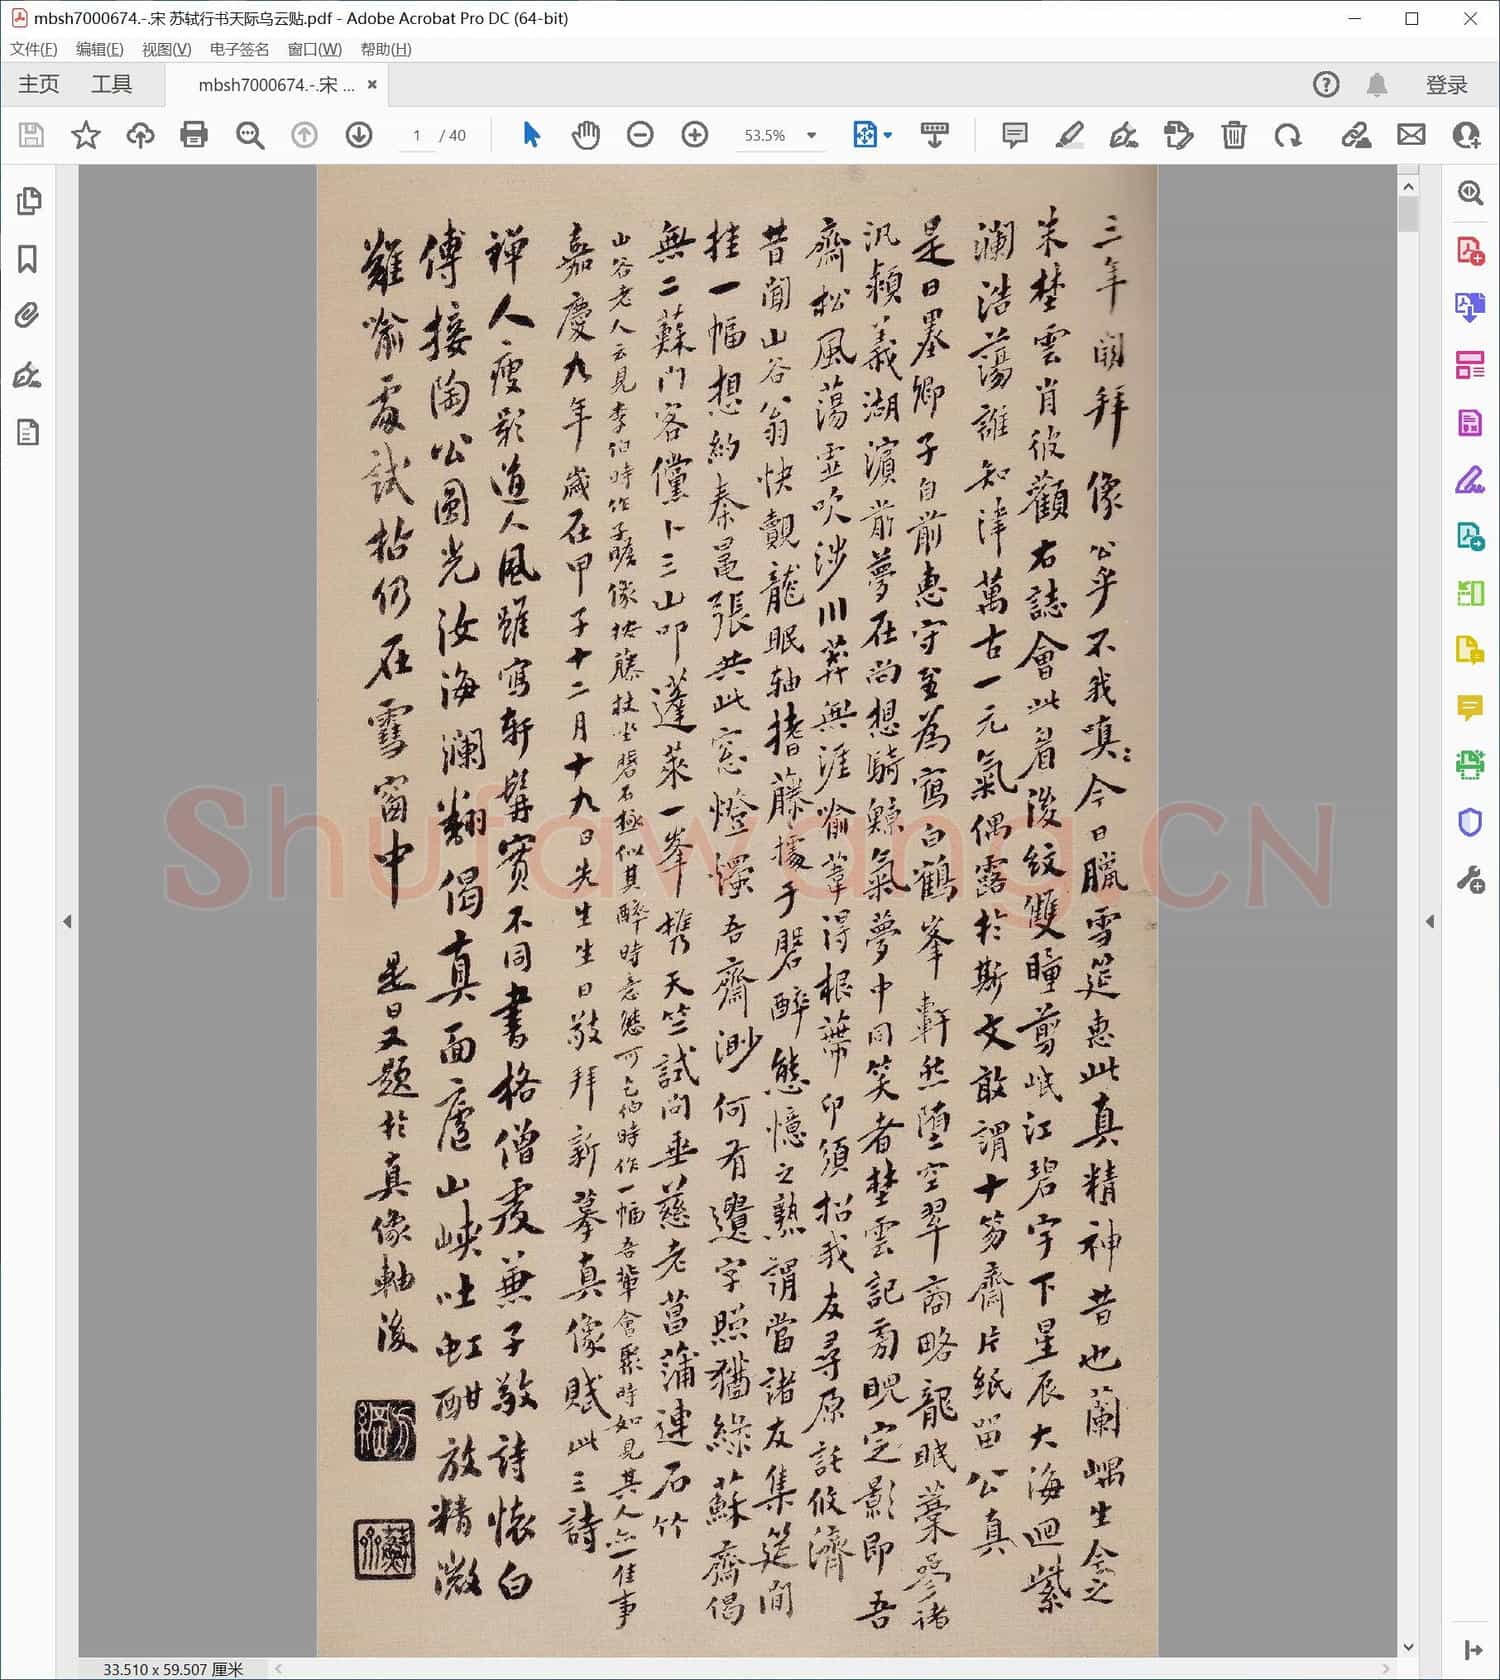 mbsh7000674.-.宋 苏轼行书天际乌云贴.pdf - Adobe Acrobat Pro DC (64-bit)
文件(F) 编辑(E) 视图(V) 电子签名 窗口(W) 帮助(H)
主页 工具 mbsh7000674.-.宋 ... × 登录
1 / 40 53.5%
三年閒拜像公乎不我嗔嗔今日臘雪筵惠此真精神昔也蘭嵎生含之
朱埜雲肖彼顴右誌會此眉後紋雙瞳剪岷江碧宇下星辰大海迴紫
瀾浩蕩誰知津萬古一元氣偶露於斯文敢謂十笏齋片紙留公真
是日墨卿子自前惠守至為寫白鶴峯軒然墮空翠商略龍眠藁參諸
汎潁義湖濱前夢在尚想騎鯨氣夢中同笑者埜雲記旁睨定影即吾
齋松風蕩虛吹涉川莽無涯喻葦得根蒂印須招我友尋原託攸濟
昔聞山谷翁快覩龍眠軸搘藤據于磐醉態憶之熟謂當諸友集筵間
挂一幅想約秦晁張共此窓燈燭吾齋渺何有遺字照猶綠蘇齋偈
無二蘇門客儻卜三山叩蓬萊一峯携天竺試問垂慈老菖蒲連石竹
山谷老人云見李伯時作子瞻像按藤杖坐磐石極似其醉時意態可乞伯時作一幅吾輩會聚時如見其人亦一佳事
嘉慶九年歲在甲子十二月十九日先生生日敬拜新摹真像賦此三詩
禪人瘦影道人風雖寫軒髯實不同書格僧虔兼子敬詩懷白
傅接陶公圓光汝海瀾翻偈真面廬山峽吐虹酣放精微
難喻處試拈仍在雪窗中 是日又題於真像軸後
Shufawang.CN
33.510 x 59.507 厘米